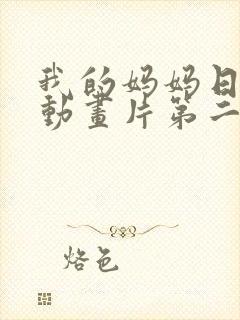 我的妈妈日
動畫片第二
烙色